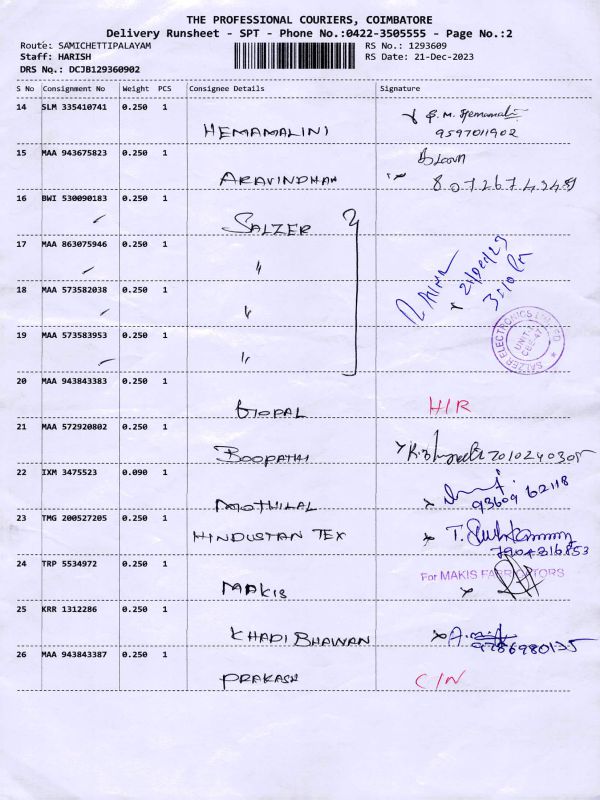 THE PROFESSIONAL COURIERS, COIMBATORE
Delivery Runsheet - SPT - Phone No.:0422-3505555 - Page No.:2
Route: SAMICHETTIPALAYAM RS No.: 1293609
Staff: HARISH RS Date: 21-Dec-2023
DRS No.: DCJB129360902
S No Consignment No Weight PCS Consignee Details Signature
14 SLM 335410741 0.250 1
HEMAMALINI
9597011902
15 MAA 943675823 0.250 1
ARAVINDHAN
16 BWI 530090183 0.250 1
SALZER
17 MAA 863075946 0.250 1
〃
18 MAA 573582038 0.250 1
〃
19 MAA 573583953 0.250 1
〃
SALZER ELECTRONICS LIMITED
20 MAA 943843383 0.250 1
GOPAL H/R
21 MAA 572920802 0.250 1
BOOPATHI 7010240305
22 IXM 3475523 0.090 1
MOTHILAL 93609 62118
23 TMG 200527205 0.250 1
HINDUSTAN TEX
7904316853
24 TRP 5534972 0.250 1
For MAKIS FABRICATORS
MAKIS
25 KRR 1312286 0.250 1
KHADI BHAWAN
9786980135
26 MAA 943843387 0.250 1
PRAKASH C/N